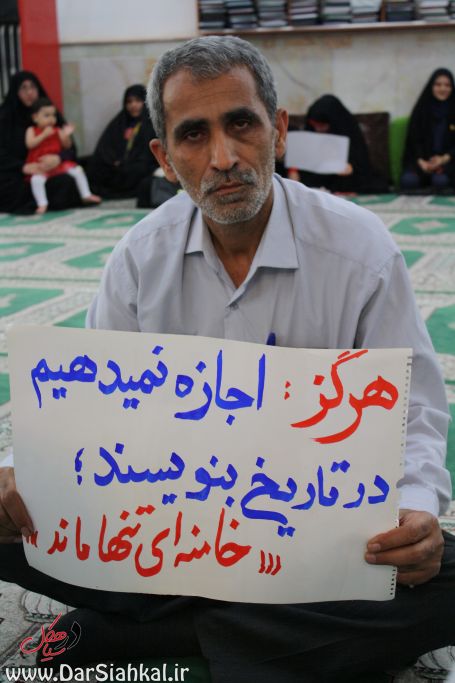 هرگز : اجازه نمیدهیم
در تاریخ بنویسند ؛
((( خامنه ای تنها ماند ))
در سیاهکل
www.DarSiahkal.ir